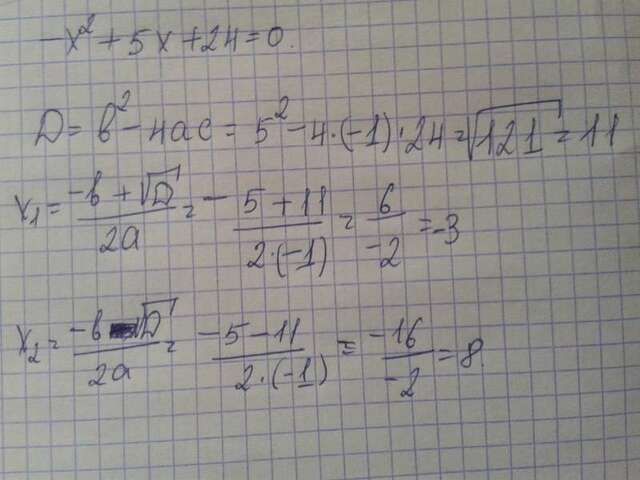 -x² + 5x + 24 = 0.
D = b² - 4ac = 5² - 4·(-1)·24 = √121 = 11
x₁ = (-b + √D)/(2a) = -(5 + 11)/(2·(-1)) = 6/(-2) = -3
x₂ = (-b - √D)/(2a) = (-5 - 11)/(2·(-1)) = (-16)/(-2) = 8